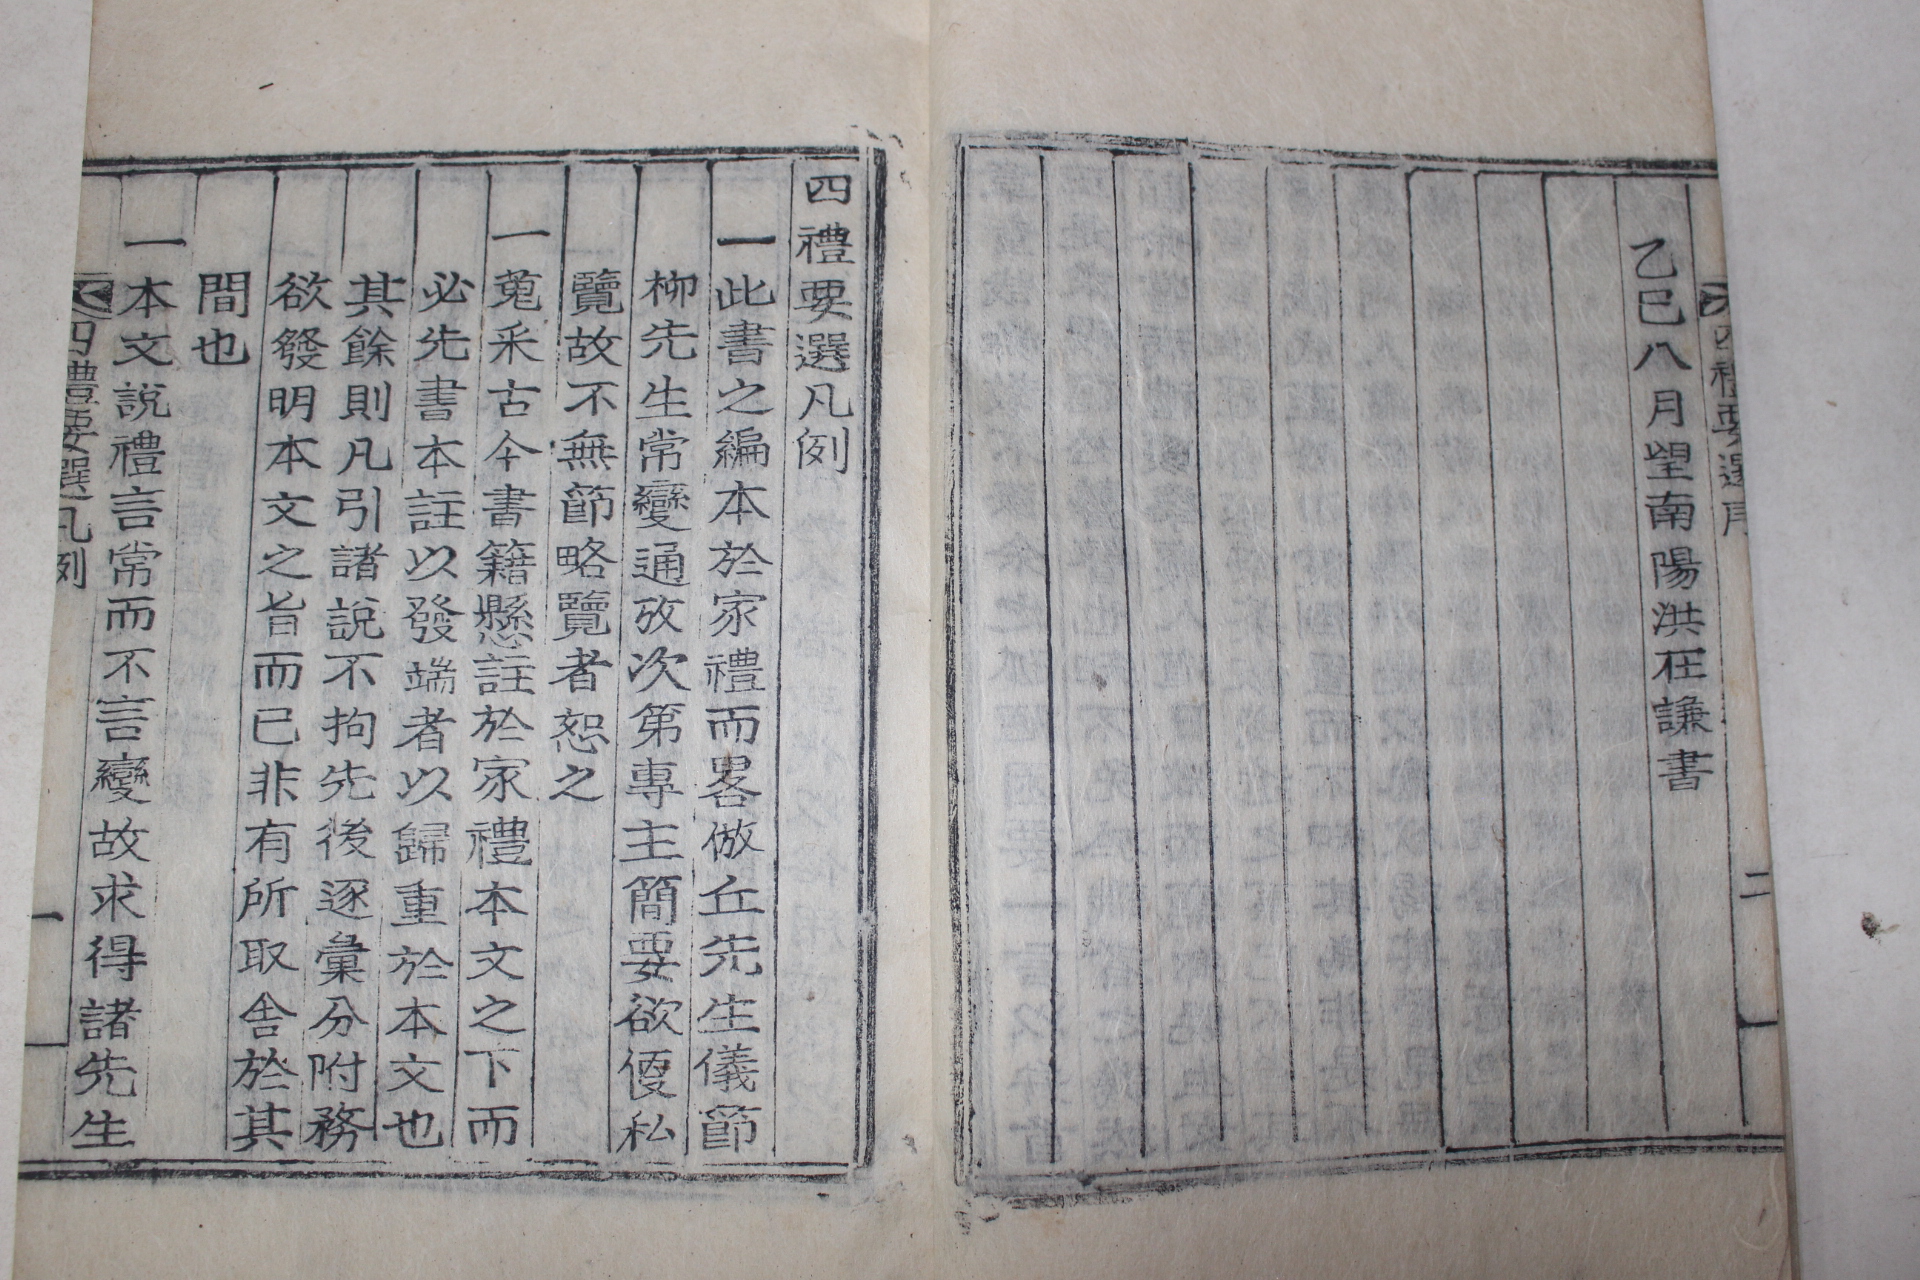 四禮要選序
二
乙巳八月望南陽洪在謙書
四禮要選凡例
一此書之編本於家禮而畧倣丘先生儀節
柳先生常變通攷次第專主簡要欲便私
覽故不無節略覽者恕之
一蒐采古今書籍懸註於家禮本文之下而
必先書本註以發端者以歸重於本文也
其餘則凡引諸說不拘先後逐彙分附務
欲發明本文之旨而已非有所取舍於其
間也
一本文說禮言常而不言變故求得諸先生
四禮要選凡例
一